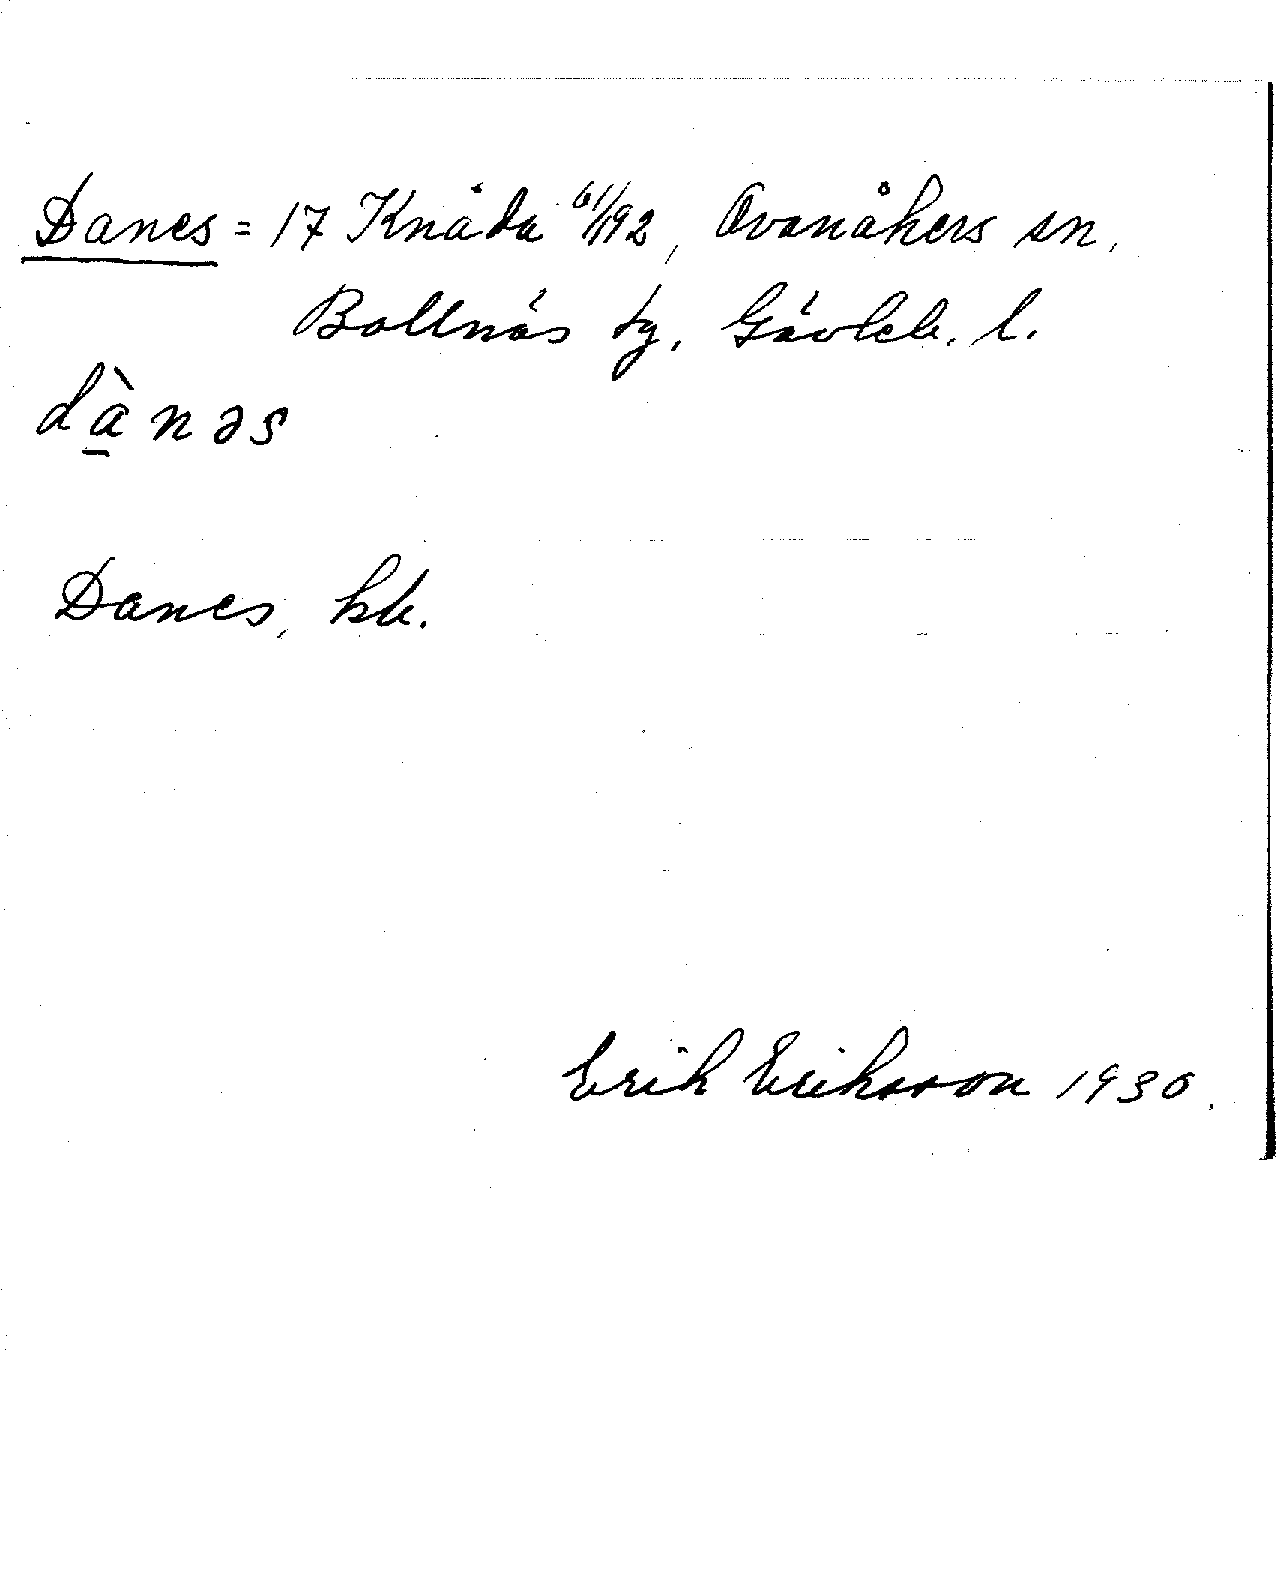 Danes = 17 Knåda 61/192, Ovanåkers sn,
Bollnäs tg, Gävleb. l.
dànəs
Danes, hb.
Erik Eriksson 1930.